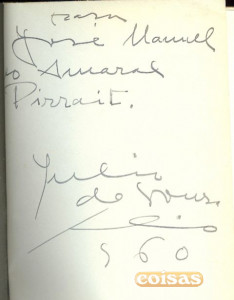 para
José Manuel
o Amaral
Pirrait.
Julio
de Sousa
960
coisas